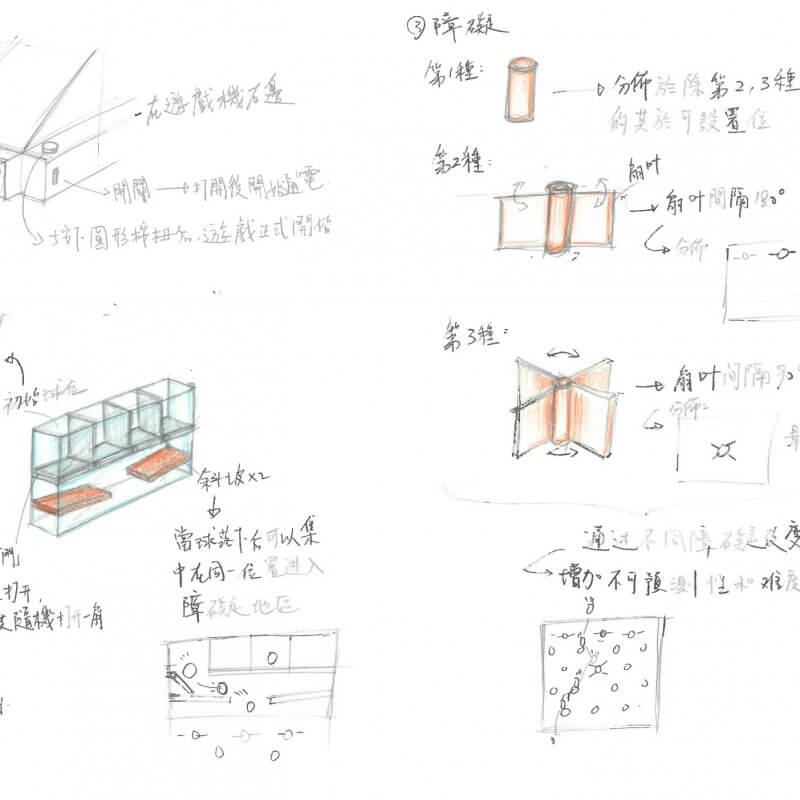 在遊戲機右邊
開關 → 打開後開始通電
按下圓形按扭後,遊戲正式開始
初始球位
斜坡x2
當球落下后可以集
中在同一位置進入
障礙地区
門」
打開,
隨機打開一角
③障礙
第1種:
分佈於除第2,3種
的其於可設置位
第2種:
扇叶
扇叶間隔180°
分佈
第3種:
扇叶间隔90°
分佈:
通过不同障礙
增加不可預測性和难度